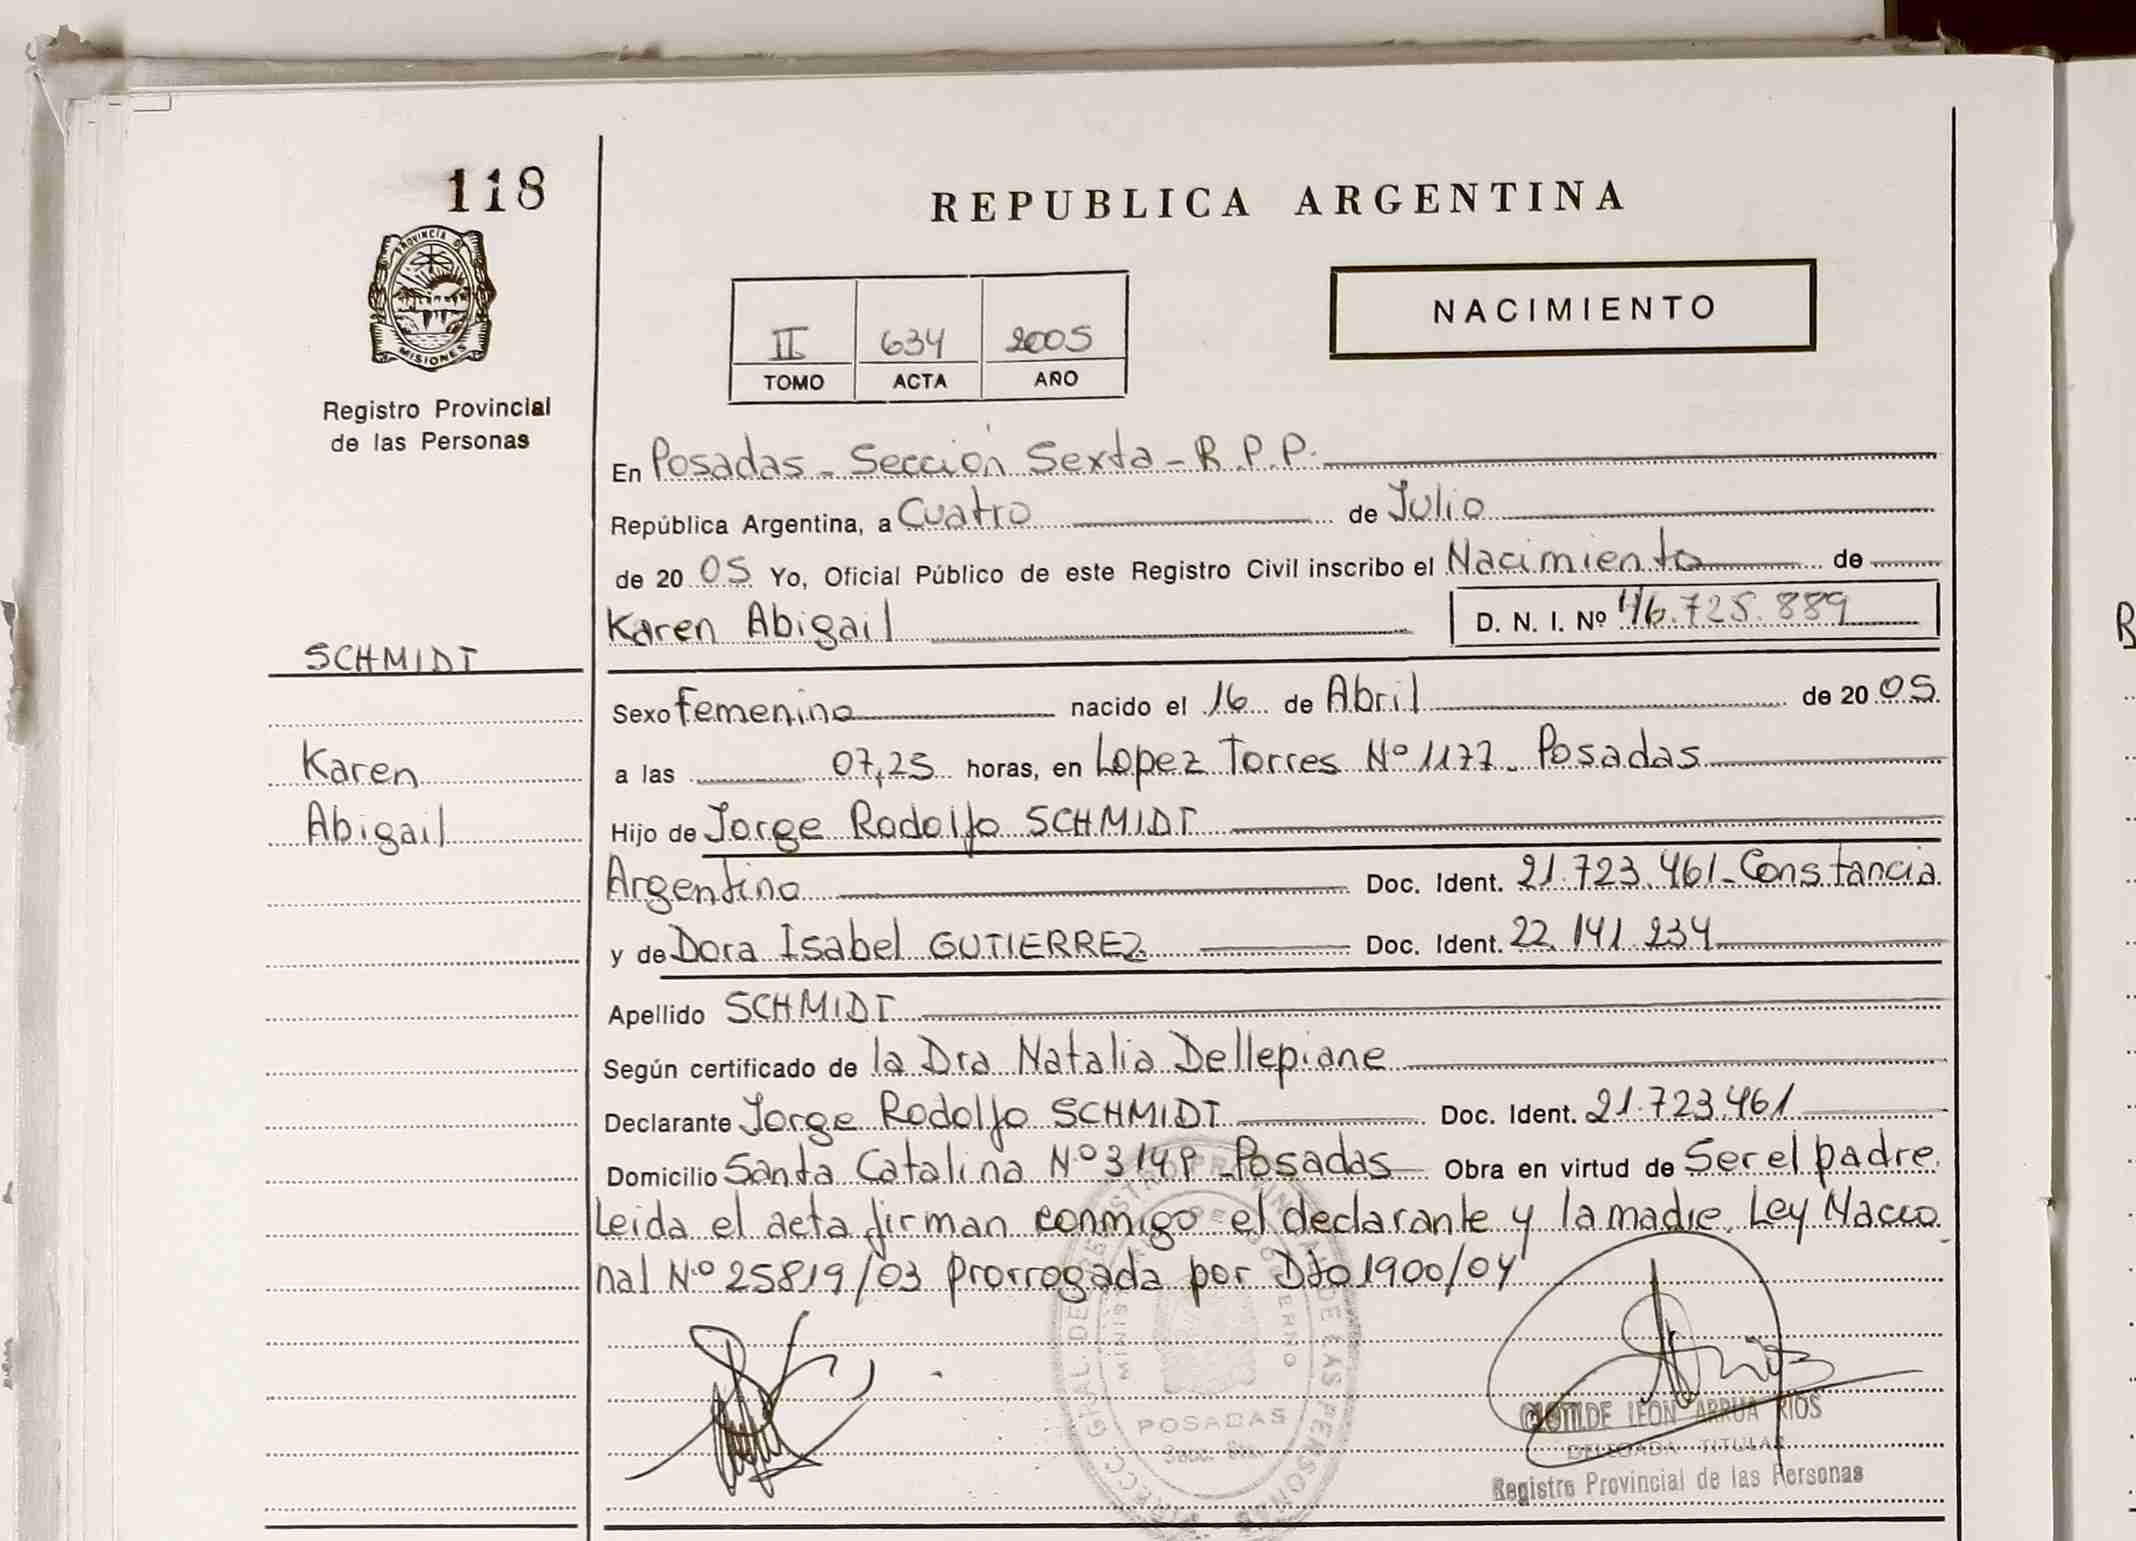 118
PROVINCIA DE
MISIONES
Registro Provincial
de las Personas
REPUBLICA ARGENTINA
NACIMIENTO
II 634 2005
TOMO ACTA AÑO
En Posadas - Sección Sexta - R.P.P.
República Argentina, a Cuatro de Julio
de 20 05 Yo, Oficial Público de este Registro Civil inscribo el Nacimiento de
Karen Abigail D. N. I. Nº 46.725.889
SCHMIDT
Karen
Abigail
Sexo Femenino nacido el 16 de Abril de 20 05
a las 07,25 horas, en Lopez Torres Nº 1177 - Posadas
Hijo de Jorge Rodolfo SCHMIDT
Argentino Doc. Ident. 21.723.461 - Constancia
y de Dora Isabel GUTIERREZ Doc. Ident. 22.141.234
Apellido SCHMIDT
Según certificado de la Dra Natalia Dellepiane
Declarante Jorge Rodolfo SCHMIDT Doc. Ident. 21.723.461
Domicilio Santa Catalina Nº Posadas Obra en virtud de Ser el padre.
Leida el acta firman conmigo el declarante y la madre. Ley Nacio
nal Nº 25819/03 prorrogada por Dto 1900/04
POSADAS
CLOTILDE LEON ARRUA RIOS
DELEGADA TITULAR
Registro Provincial de las Personas
B